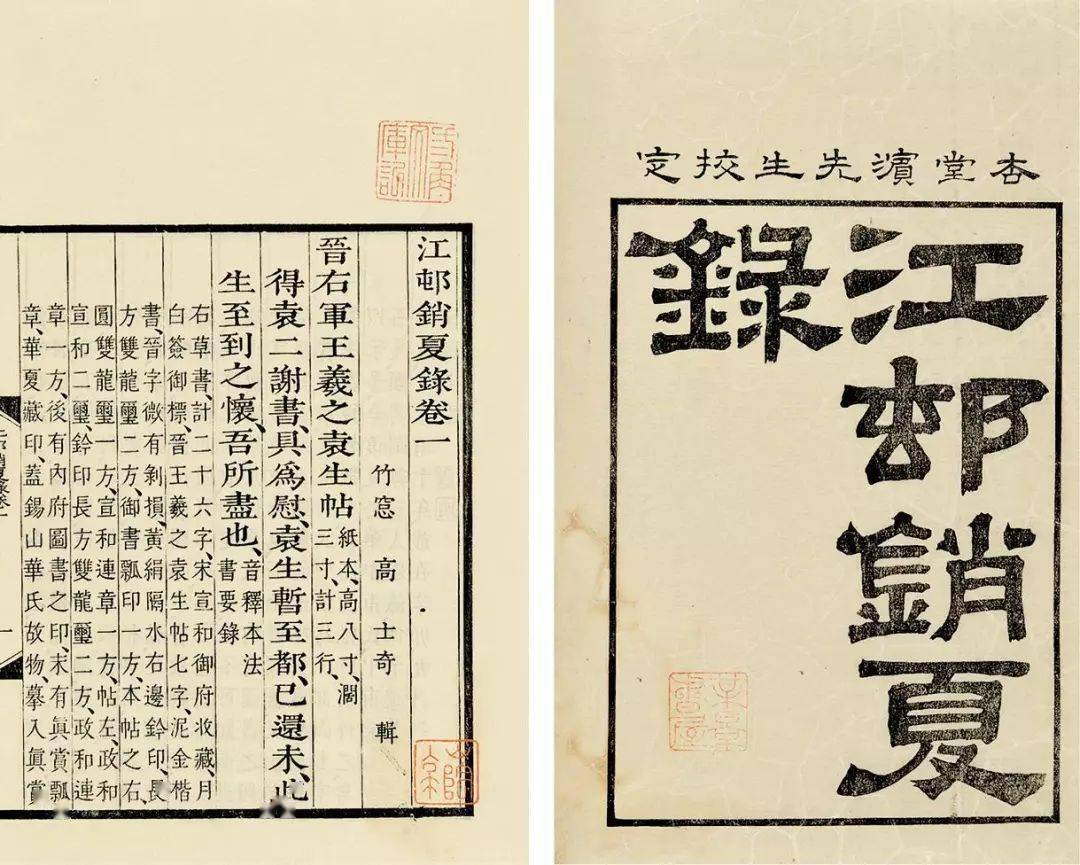 杏堂濱先生挍定
江邨銷夏
錄
江邨銷夏錄卷一
竹窓高士奇輯
晉右軍王羲之袁生帖紙本、高八寸、濶
三寸、計三行、
得袁二謝書、具爲慰、袁生暫至都、已還未、此
生至到之懷、吾所盡也、音釋本法
書要錄
右草書、計二十六字、宋宣和御府收藏、月
白簽御標、晉王羲之袁生帖七字、泥金楷
書、晉字微有剝損、黃絹隔水右邊鈐印、長
方雙龍璽二方、御書瓢印一方、本帖之右、
圓雙龍璽一方、宣和連章一方、帖左、政和
宣和二璽、鈐印長方雙龍璽二方、政和連
章一方、後有內府圖書之印、末有眞賞瓢
章、華夏藏印、蓋錫山華氏故物、摹入眞賞